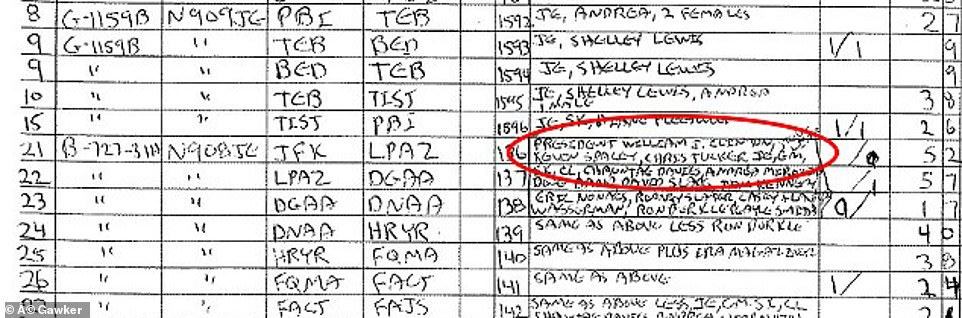 8 G-1159B N909JE PBI TEB 1592 JE, ANDREA, 2 FEMALES 2 7
9 G-1159B " TEB BED 1593 JE, SHELLEY LEWIS 1/1 9
9 " " BED TEB 1594 JE, SHELLEY LEWIS 9
10 " " TEB TIST 1595 JE, SHELLEY LEWIS, ANDREA 3 8
1 MALE
15 " " TIST PBI 1596 JE, SK, 1/1 2 6
21 B-727-31H N908JE JFK LPAZ 136 PRESIDENT WILLIAM J. CLINTON, 5 2
KEVIN SPACEY, CHRIS TUCKER, JE, GM,
22 " " LPAZ DGAA 137 SK, CL, CHAUNTAE DAVIES, ANDREA 5 7
DOUG BAND,
23 " " DGAA DNAA 138 ERIC NONACS, RODNEY SLATER, CASEY 1 7
WASSERMAN, RON BURKLE
24 " " DNAA HRYR 139 SAME AS ABOVE LESS RON BURKLE 4 0
25 " " HRYR FQMA 140 SAME AS ABOVE PLUS IRA MAGAZINER 3 8
26 " " FQMA FACT 141 SAME AS ABOVE 1/ 2 4
27 " " FACT FAJS 142 SAME AS ABOVE LESS, JE, GM, SK, CL
© AC Gawker